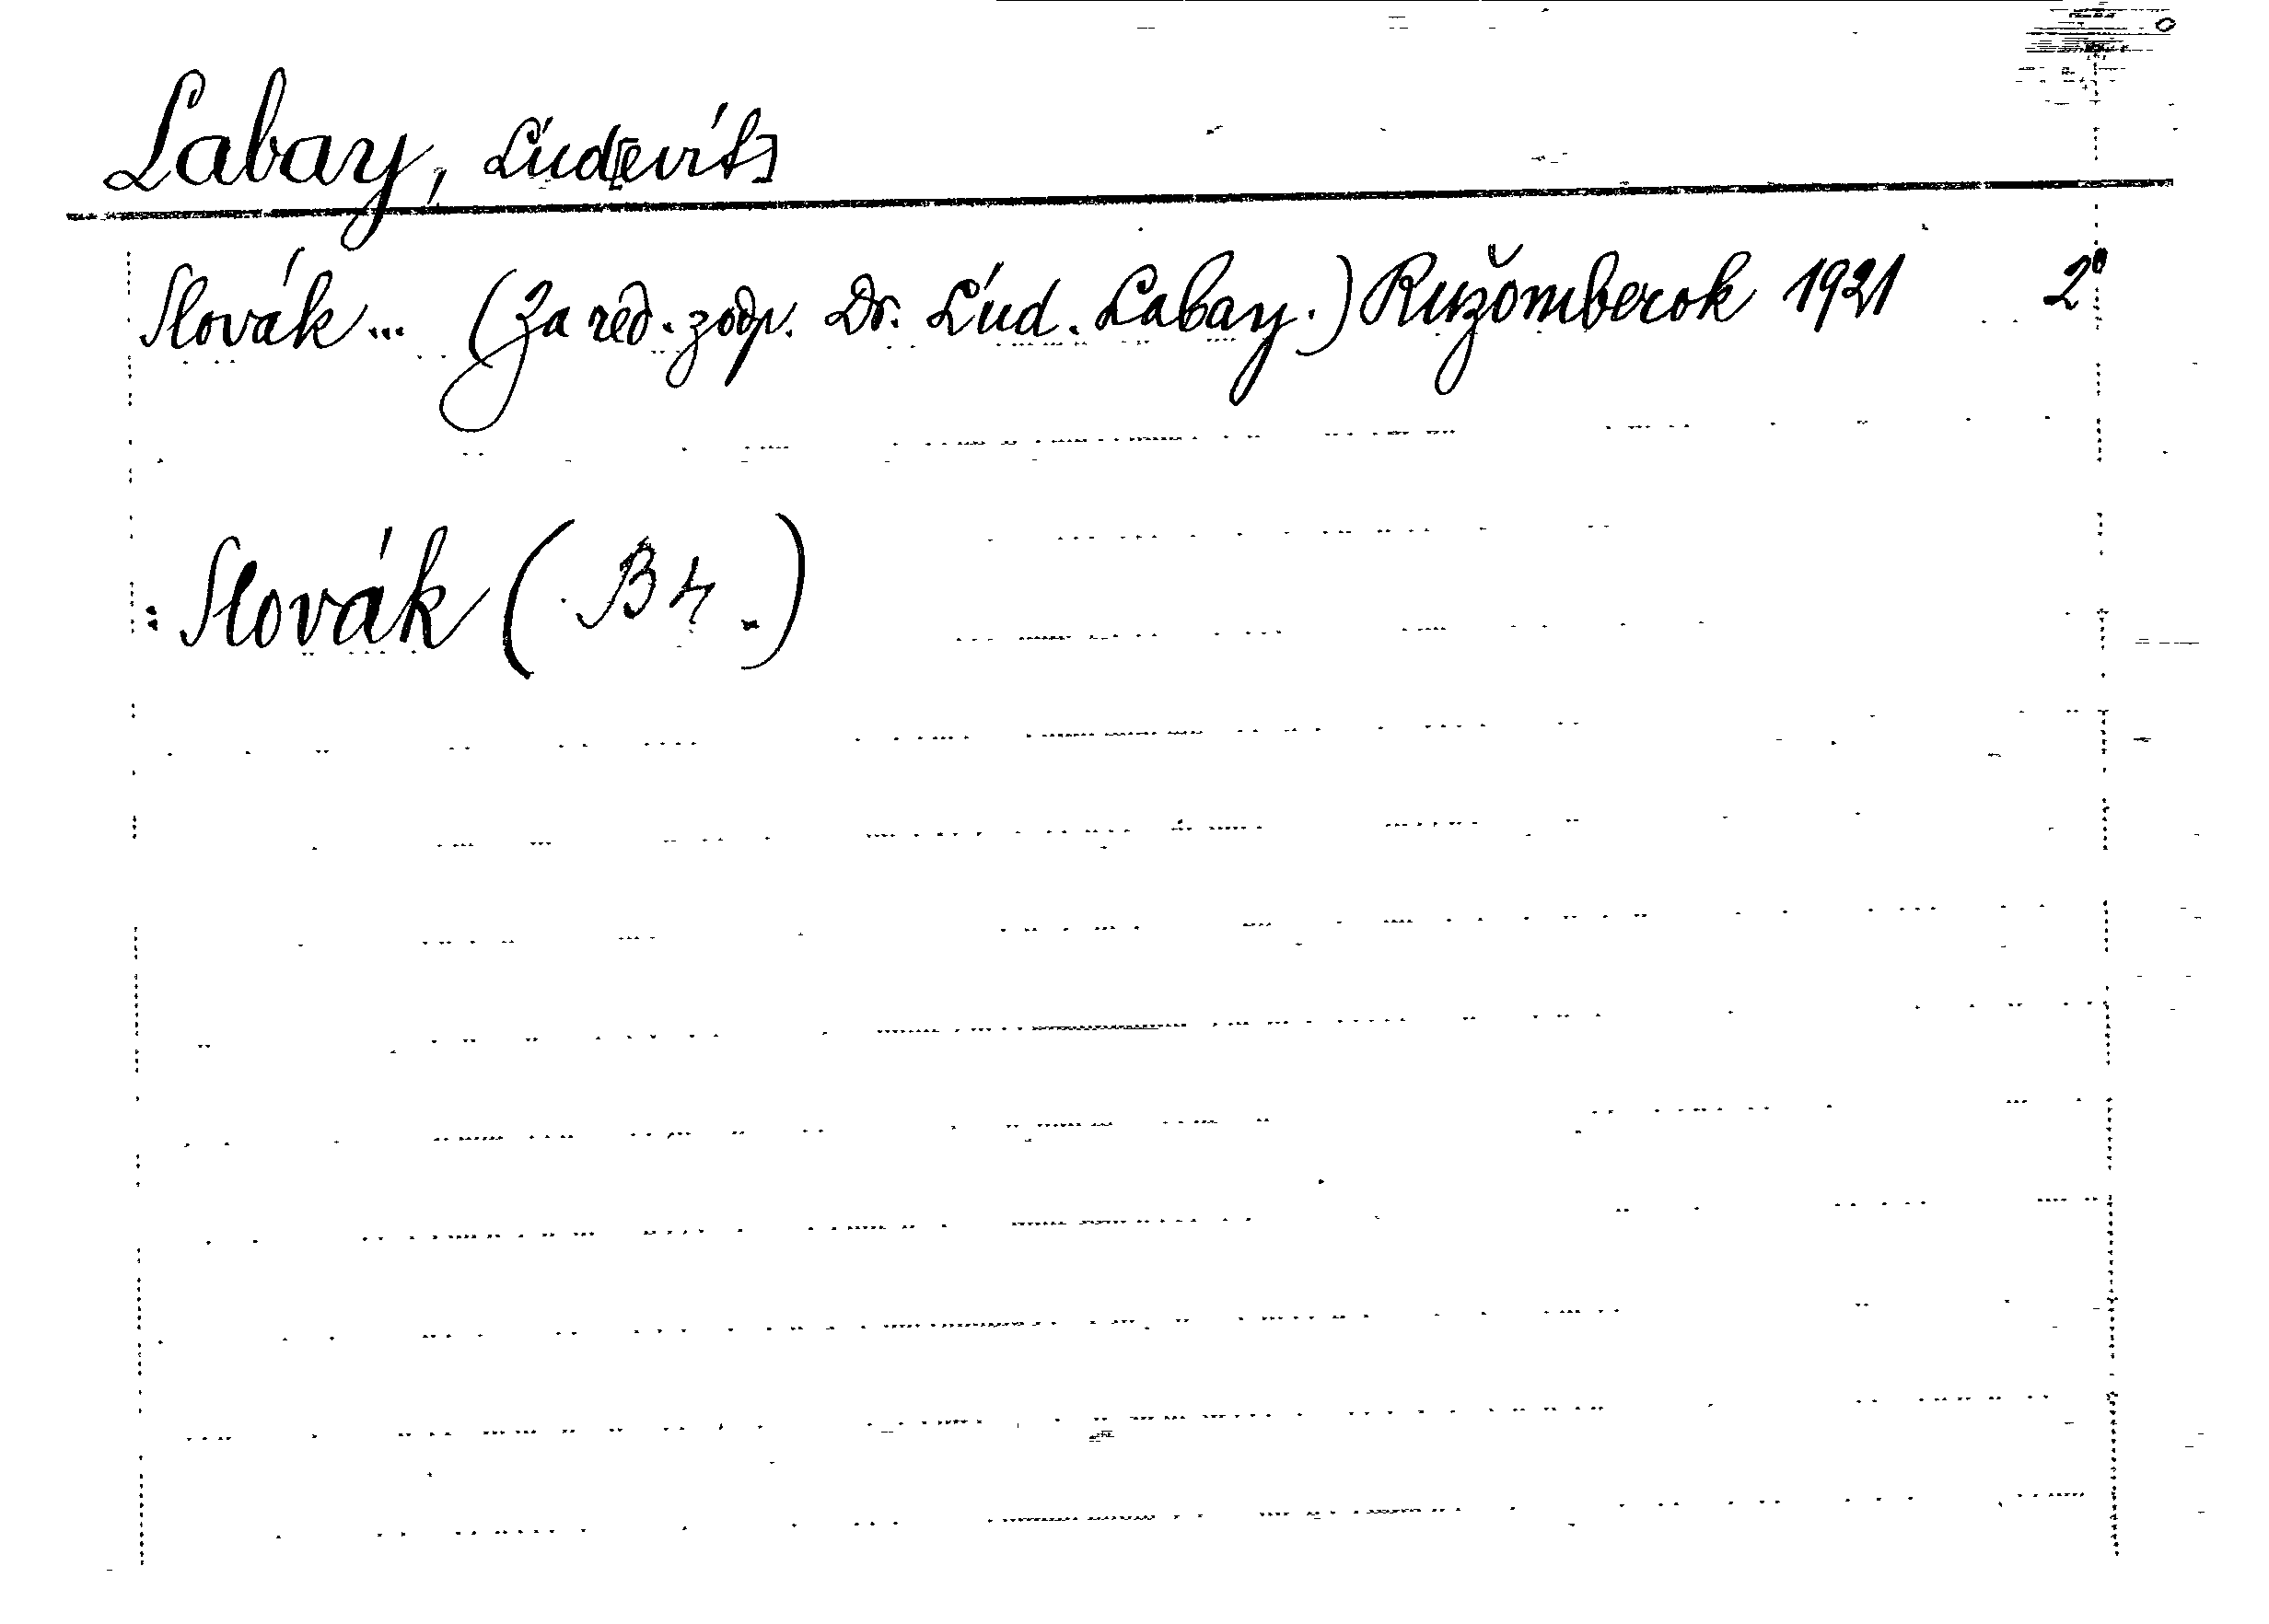 Labay, Ľud[evít]
Slovák... (Za red. zodp. Dr. Ľud. Labay.) Ružomberok 1921 2°
: Slovák (B 4.)